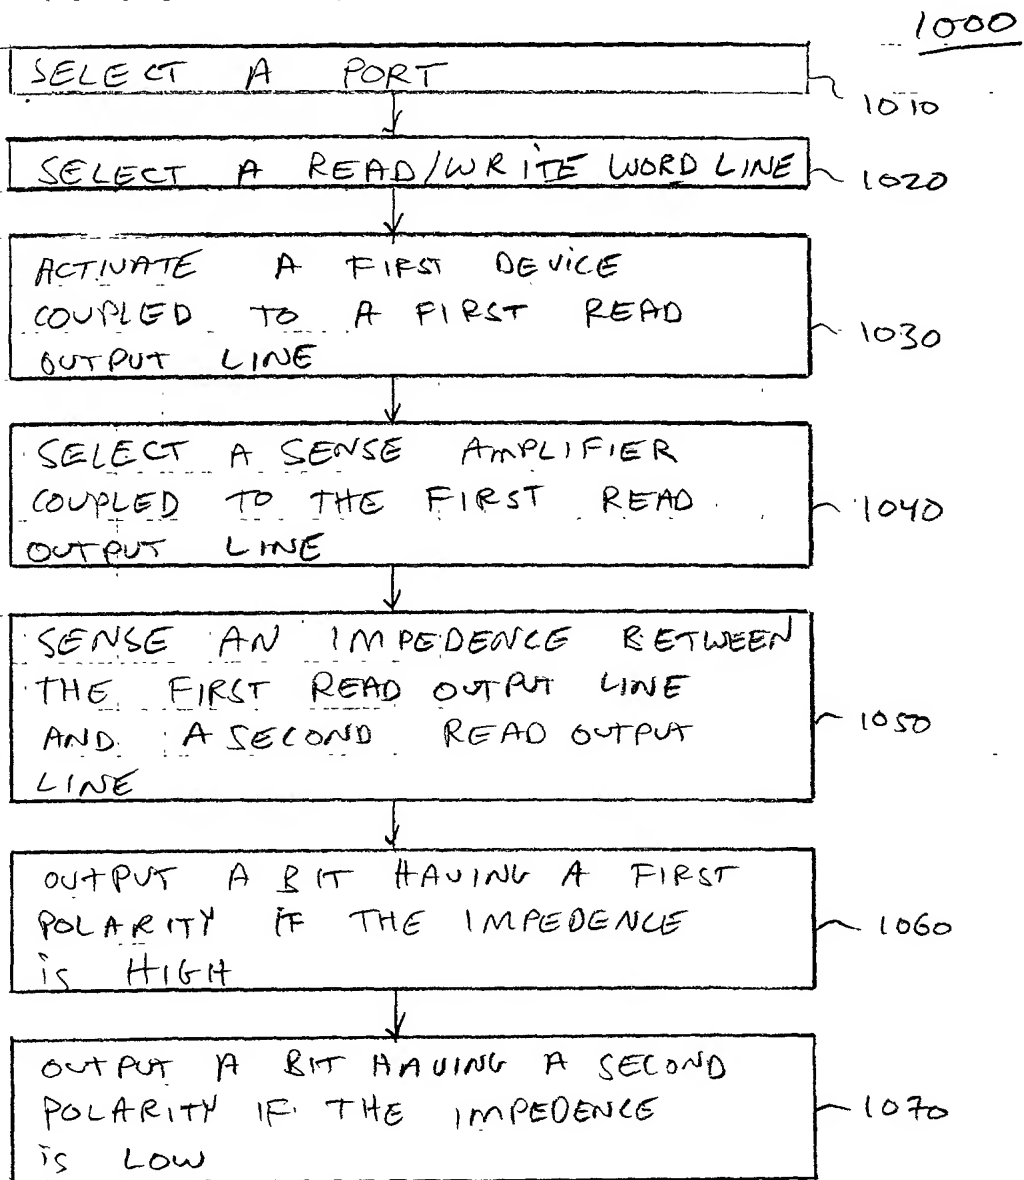 1000
SELECT A PORT
1010
SELECT A READ/WRITE WORD LINE
1020
ACTIVATE A FIRST DEVICE
COUPLED TO A FIRST READ
OUTPUT LINE
1030
SELECT A SENSE AMPLIFIER
COUPLED TO THE FIRST READ
OUTPUT LINE
1040
SENSE AN IMPEDENCE BETWEEN
THE FIRST READ OUTPUT LINE
AND A SECOND READ OUTPUT
LINE
1050
OUTPUT A BIT HAVING A FIRST
POLARITY IF THE IMPEDENCE
is HIGH
1060
OUTPUT A BIT HAVING A SECOND
POLARITY IF THE IMPEDENCE
is LOW
1070